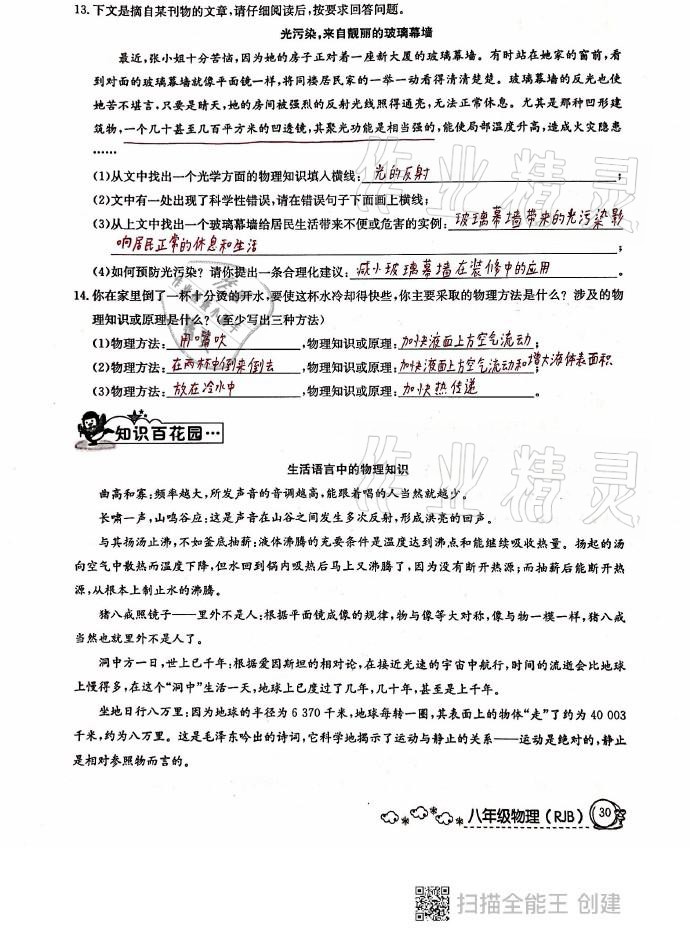 13. 下文是摘自某刊物的文章,请仔细阅读后,按要求回答问题。
光污染,来自靓丽的玻璃幕墙
最近,张小姐十分苦恼,因为她的房子正对着一座新大厦的玻璃幕墙。有时站在她家的窗前,看
到对面的玻璃幕墙就像平面镜一样,将同楼居民家的一举一动看得清清楚楚。玻璃幕墙的反光也使
她苦不堪言,只要是晴天,她的房间被强烈的反射光线照得通亮,无法正常休息。尤其是那种凹形建
筑物,一个几十甚至几百平方米的凹透镜,其聚光功能是相当强的,能使局部温度升高,造成火灾隐患
……
(1)从文中找出一个光学方面的物理知识填入横线: 光的反射 ;
(2)文中有一处出现了科学性错误,请在错误句子下面画上横线;
(3)从上文中找出一个玻璃幕墙给居民生活带来不便或危害的实例: 玻璃幕墙带来的光污染影
响居民正常的休息和生活 ;
(4)如何预防光污染?请你提出一条合理化建议: 减小玻璃幕墙在装修中的应用 。
14. 你在家里倒了一杯十分烫的开水,要使这杯水冷却得快些,你主要采取的物理方法是什么?涉及的物
理知识或原理是什么?(至少写出三种方法)
(1)物理方法: 用嘴吹 ,物理知识或原理: 加快液面上方空气流动 ;
(2)物理方法: 在两杯中倒来倒去 ,物理知识或原理: 加快液面上方空气流动和增大液体表面积
(3)物理方法: 放在冷水中 ,物理知识或原理: 加快热传递 。
知识百花园…
生活语言中的物理知识
曲高和寡:频率越大,所发声音的音调越高,能跟着唱的人当然就越少。
长啸一声,山鸣谷应:这是声音在山谷之间发生多次反射,形成洪亮的回声。
与其扬汤止沸,不如釜底抽薪:液体沸腾的充要条件是温度达到沸点和能继续吸收热量。扬起的汤
向空气中散热而温度下降,但水回到锅内吸热后马上又沸腾了,因为没有断开热源;而抽薪后能断开热
源,从根本上制止水的沸腾。
猪八戒照镜子——里外不是人:根据平面镜成像的规律,物与像等大对称,像与物一模一样,猪八戒
当然也就里外不是人了。
洞中方一日,世上已千年:根据爱因斯坦的相对论,在接近光速的宇宙中航行,时间的流逝会比地球
上慢得多,在这个“洞中”生活一天,地球上已度过了几年,几十年,甚至是上千年。
坐地日行八万里:因为地球的半径为 6 370 千米,地球每转一圈,其表面上的物体“走”了约为 40 003
千米,约为八万里。这是毛泽东吟出的诗词,它科学地揭示了运动与静止的关系——运动是绝对的,静止
是相对参照物而言的。
八年级物理(RJB) 30
扫描全能王 创建
作业精灵
作业精灵